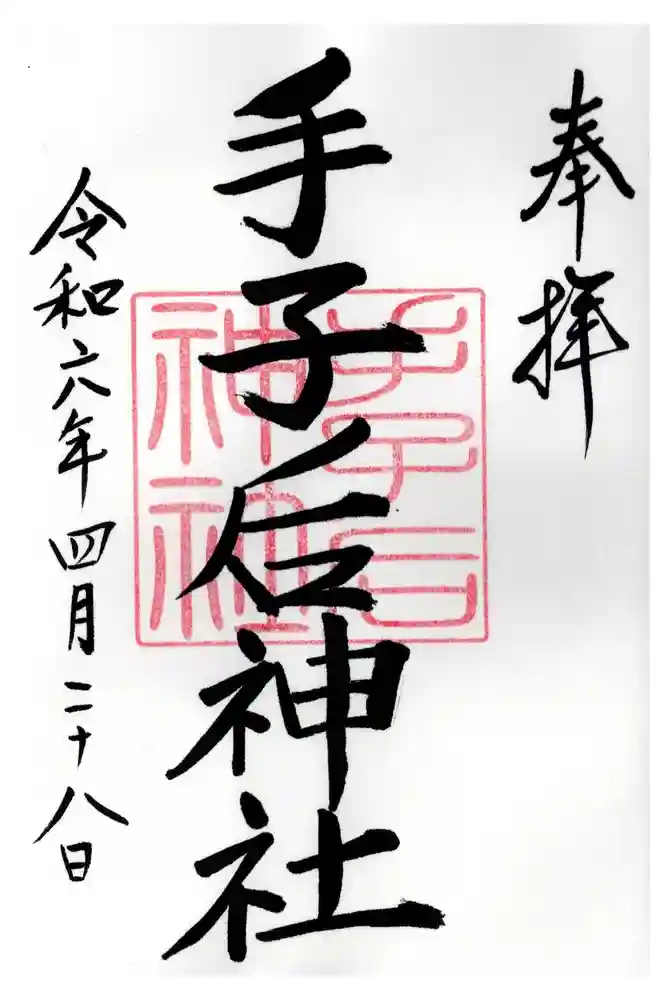 奉拝
手子后神社
手子后
神社
令和六年四月二十八日